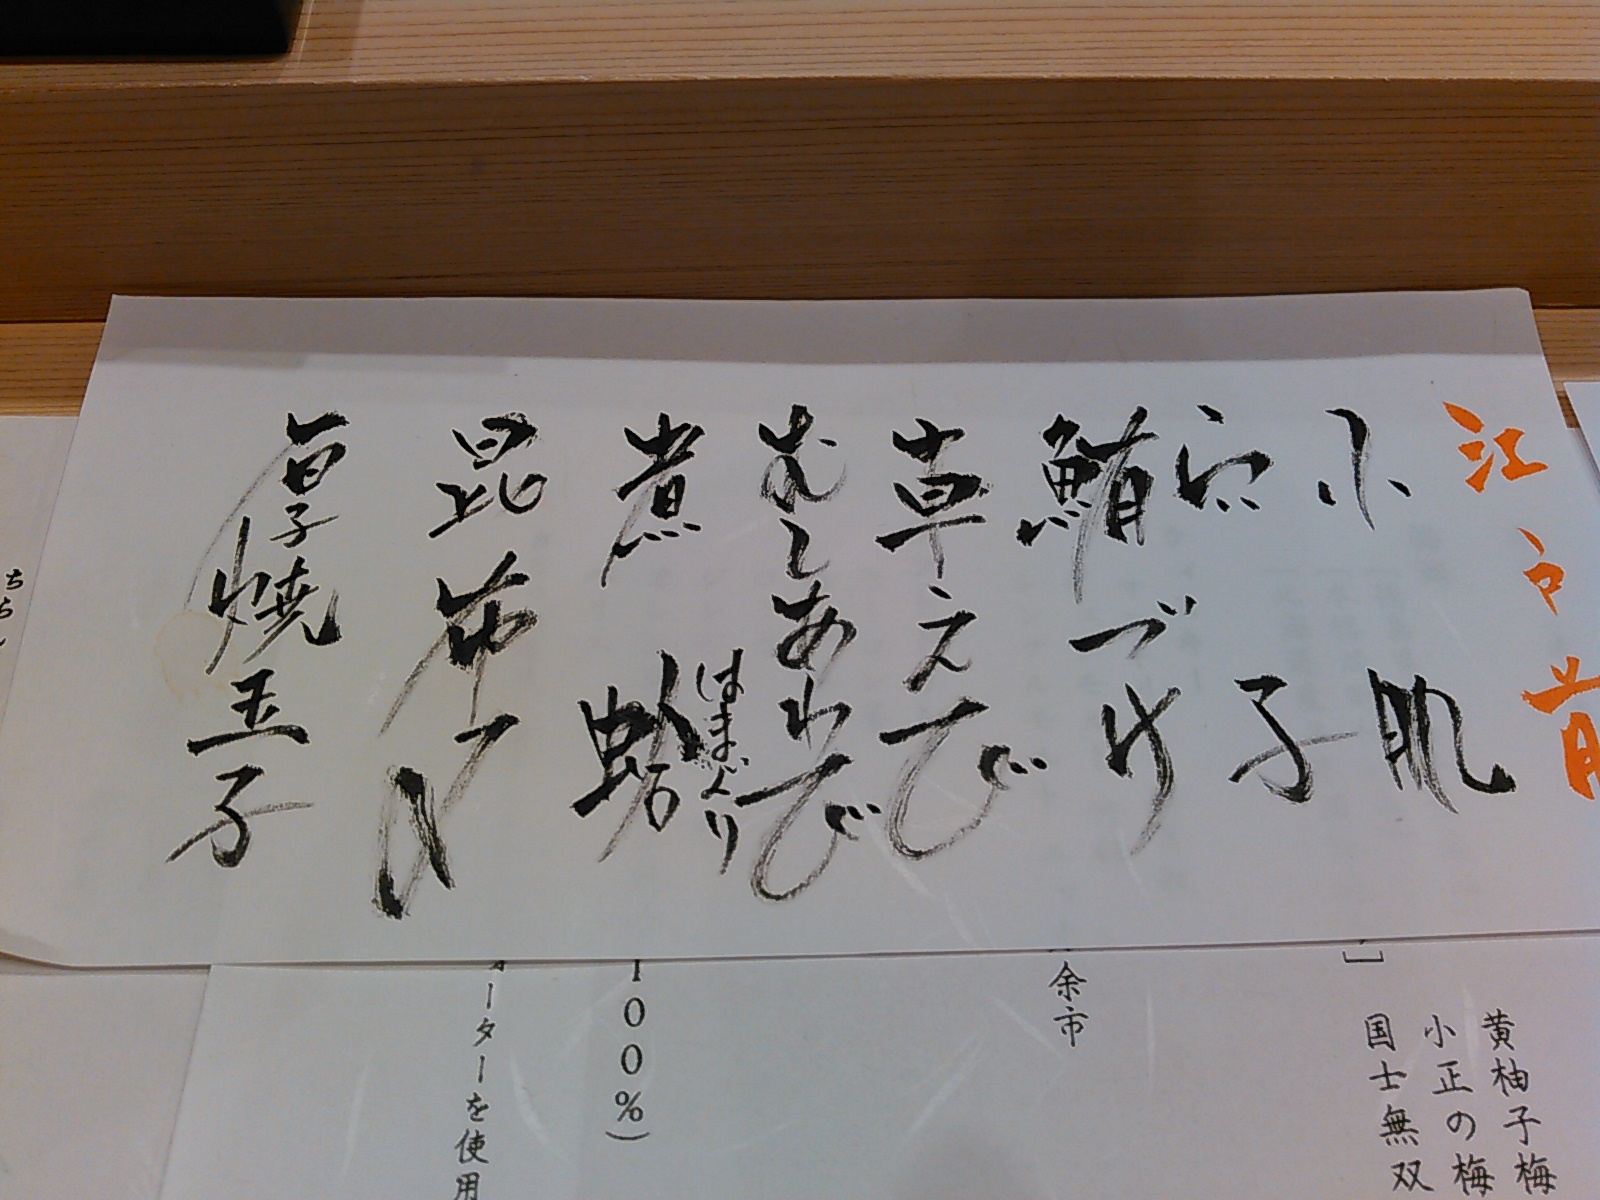 江戸前
小肌
穴子
鮪づけ
車えび
むしあわび
煮蛤
はまぐり
昆布〆
厚焼玉子
黄柚子梅
小正の梅
国士無双
余市
100%)
ォーターを使用